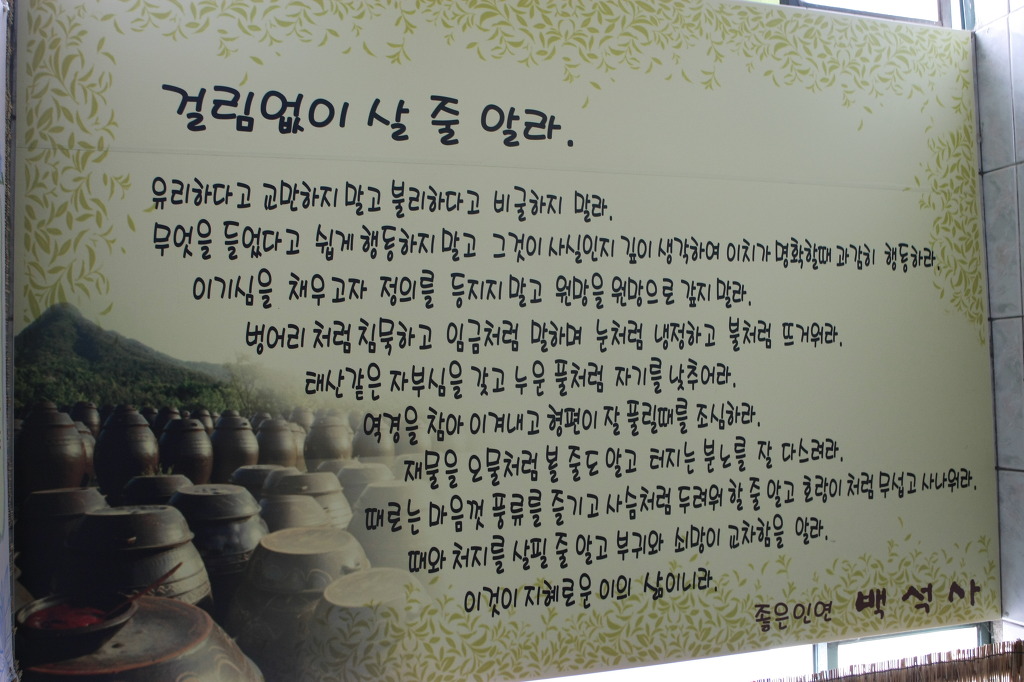 걸림없이 살 줄 알라.
유리하다고 교만하지 말고 불리하다고 비굴하지 말라.
무엇을 들었다고 쉽게 행동하지 말고 그것이 사실인지 깊이 생각하여 이치가 명확할때 과감히 행동하라.
이기심을 채우고자 정의를 등지지 말고 원망을 원망으로 갚지 말라.
벙어리처럼 침묵하고 임금처럼 말하며 눈처럼 냉정하고 불처럼 뜨거워라.
태산같은 자부심을 갖고 누운 풀처럼 자기를 낮추어라.
역경을 참아 이겨내고 형편이 잘 풀릴때를 조심하라.
재물을 오물처럼 볼 줄도 알고 터지는 분노를 잘 다스려라.
때로는 마음껏 풍류를 즐기고 사슴처럼 두려워 할 줄 알고 호랑이처럼 무섭고 사나워라.
때와 처지를 살필 줄 알고 부귀와 쇠망이 교차함을 알라.
이것이 지혜로운 이의 삶이니라.
좋은인연 백석사